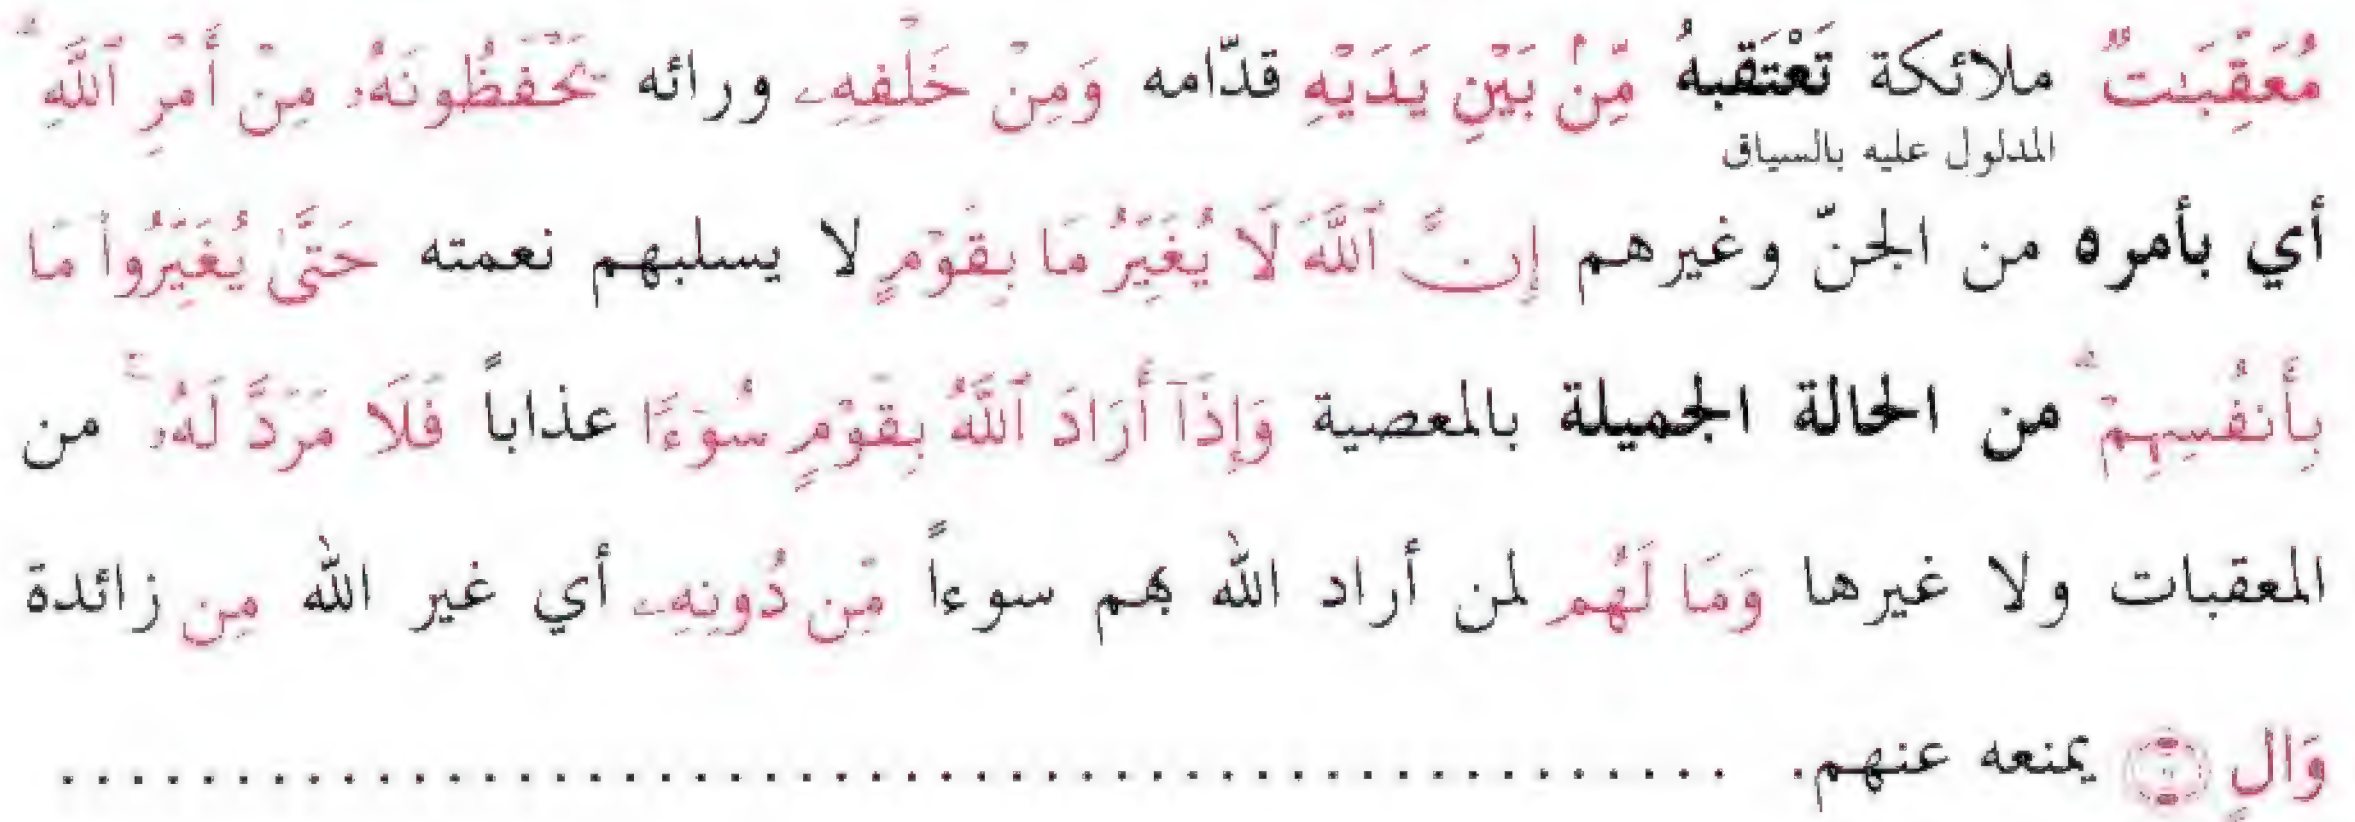 مُعَقِّبَـٰتٌ ملائكة تَعْتَقبهُ مِّنۢ بَيْنِ يَدَيْهِ قدّامه وَمِنْ خَلْفِهِۦ ورائه يَحْفَظُونَهُۥ مِنْ أَمْرِ ٱللَّهِ ۗ
المدلول عليه بالسياق
أي بأمره من الجنّ وغيرهم إِنَّ ٱللَّهَ لَا يُغَيِّرُ مَا بِقَوْمٍ لا يسلبهم نعمته حَتَّىٰ يُغَيِّرُوا۟ مَا
بِأَنفُسِهِمْ ۗ من الحالة الجميلة بالمعصية وَإِذَآ أَرَادَ ٱللَّهُ بِقَوْمٍ سُوٓءًا عذاباً فَلَا مَرَدَّ لَهُۥ ۚ من
المعقبات ولا غيرها وَمَا لَهُم لمن أراد الله بهم سوءاً مِّن دُونِهِۦ أي غير الله مِن زائدة
وَالٍ يمنعه عنهم. ................................................